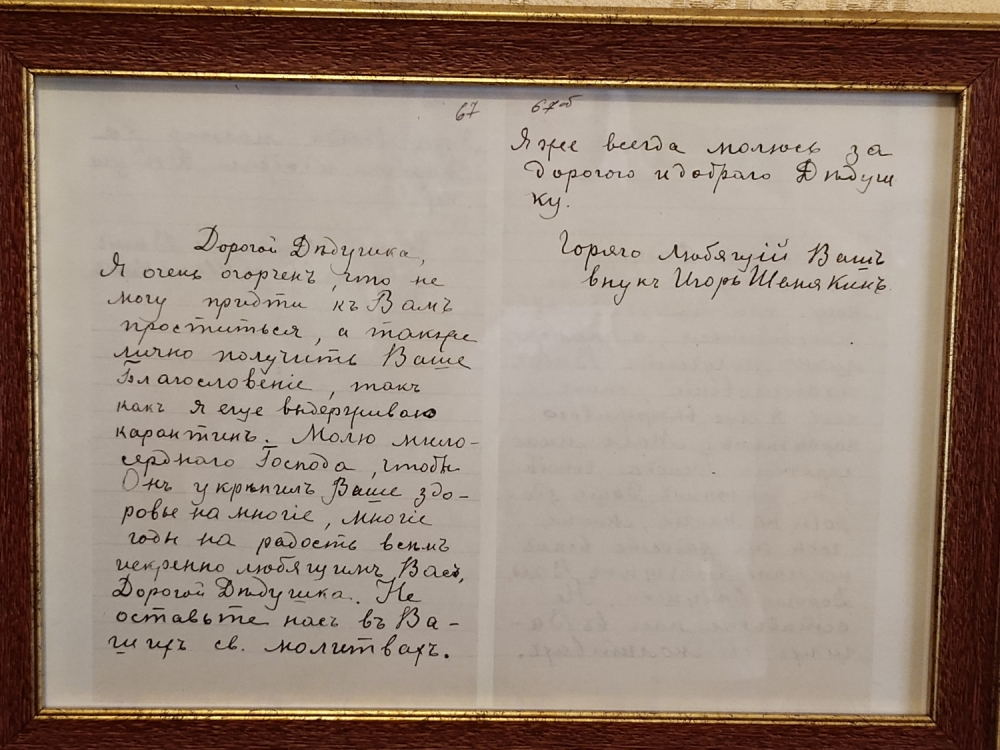 67
67об
Дорогой Дѣдушка,
Я очень огорченъ, что не
могу придти къ Вамъ
проститься, а также
лично получить Ваше
Благословеніе, такъ
какъ я еще выдерживаю
карантинъ. Молю мило-
серднаго Господа, чтобы
Онъ укрѣпилъ Ваше здо-
ровье на многіе, многіе
годы на радость всѣмъ
искренно любящимъ Васъ,
Дорогой Дѣдушка. Не
оставьте насъ въ Ва-
шихъ св. молитвахъ.
Я же всегда молюсь за
дорогого и добраго Дѣдуш
ку.
Горячо любящій Вашъ
внукъ Игорь Шенякинъ